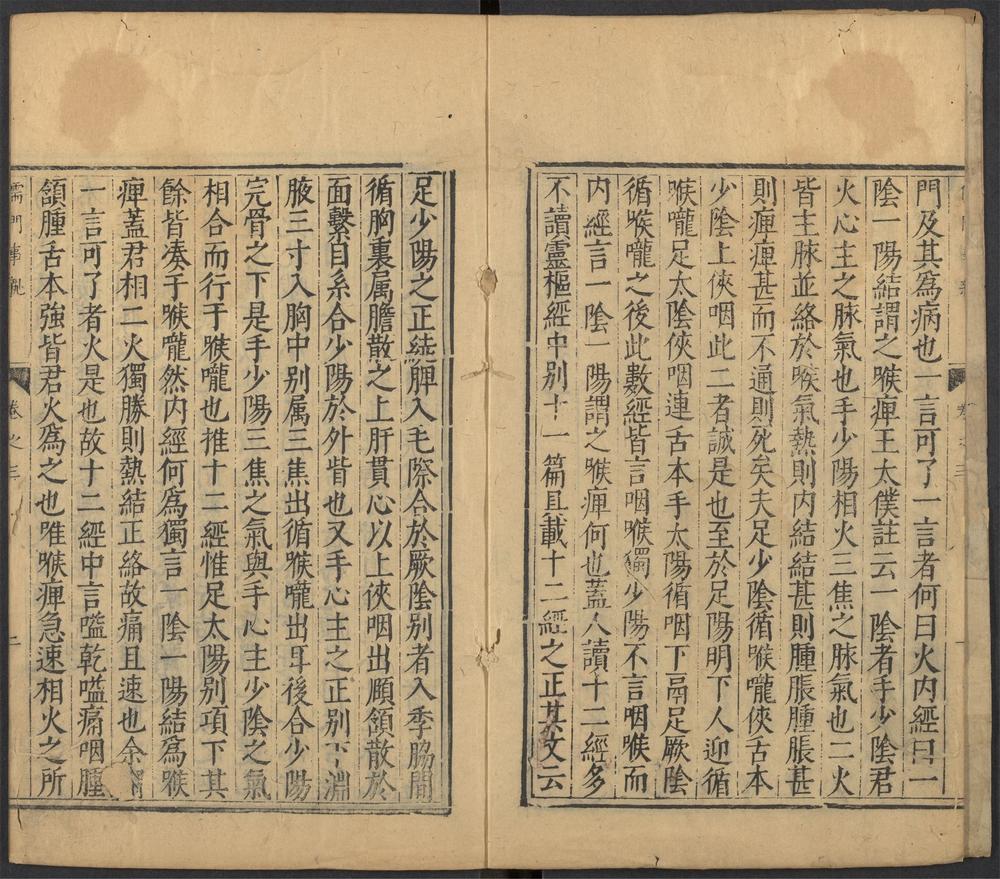 門及其爲病也一言可了一言者何曰火内經曰一
陰一陽結謂之喉痺王太僕註云一陰者手少陰君
火心主之脉氣也手少陽相火三焦之脉氣也二火
皆主脉並絡於喉氣熱則内結結甚則腫脹腫脹甚
則痺痺甚而不通則死矣夫足少陰循喉嚨俠舌本
少陰上俠咽此二者誠是也至於足陽明下人迎循
喉嚨足太陰俠咽連舌本手太陽循咽下鬲足厥陰
循喉嚨之後此數經皆言咽喉獨少陽不言咽喉而
内經言一陰一陽謂之喉痺何也蓋人讀十二經多
不讀靈樞經中别十一篇且載十二經之正其文云
足少陽之正繞髀入毛際合於厥陰别者入季脇間
循胸裏属膽散之上肝貫心以上俠咽出頤頷散於
面繫目系合少陽於外眥也又手心主之正别下淵
腋三寸入胸中别属三焦出循喉嚨出耳後合少陽
完骨之下是手少陽三焦之氣與手心主少陰之氣
相合而行于喉嚨也推十二經惟足太陽别項下其
餘皆凑于喉嚨然内經何爲獨言一陰一陽結爲喉
痺蓋君相二火獨勝則熱結正絡故痛且速也余
一言可了者火是也故十二經中言嗌乾嗌痛咽腫
頷腫舌本強皆君火爲之也唯喉痺急速相火之所
儒門事親 卷之三 二